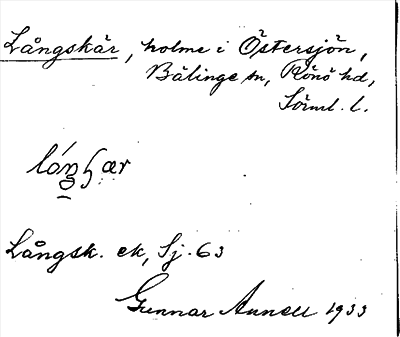 Långskär, holme i Östersjön,
Bälinge sn, Rönö hd,
Sörml. l.
Långsk. ek, Sj. 63
Gunnar Annell 1933